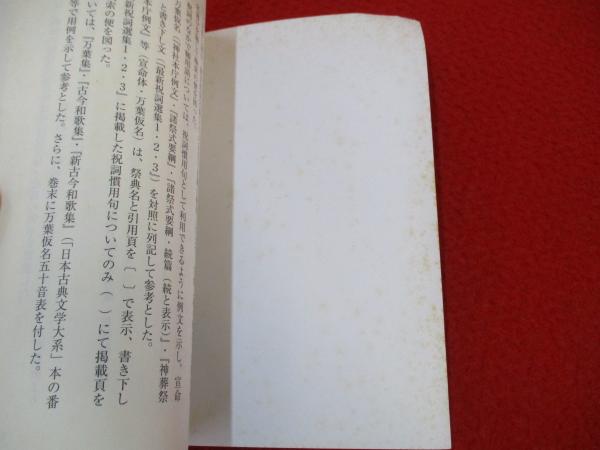 祝詞慣用句として利用できるように例文を示し。宣命
万葉仮名(『神社本庁例文』・『諸祭式要綱』・『諸祭式要綱・続篇(続と表示)』・『神葬祭
と書き下し文(『最新祝詞選集1・2・3』)を対照に列記して参考とした。
本庁例文』等(宣命体・万葉仮名)は、祭典名と引用頁を〔 〕で表示、書き下し
新祝詞選集1・2・3』に掲載した祝詞慣用句についてのみ( )にて掲載頁を
索の便を図った。
いては、『万葉集』・『古今和歌集』・『新古今和歌集』(「日本古典文学大系」本の番
等で用例を示して参考とした。さらに、巻末に万葉仮名五十音表を付した。